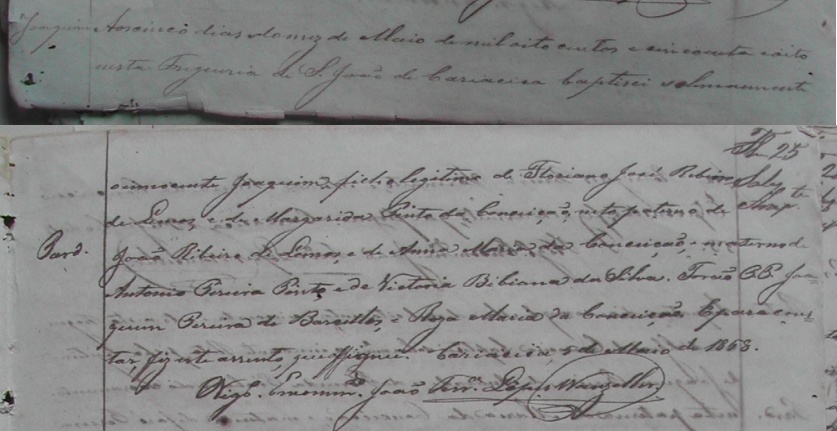 Joaquim Aos cinco dias do mez de Maio de mil oito centos e cincoenta e oito
nesta Freguezia de S. João de Cariacica baptisei solemnemente
Fl. 25
o innocente Joaquim, filho legitimo de Floriano José Ribeiro
de Lemos, e de Margarida Pinto da Conceição, neto paterno de
Pard. João Ribeiro de Lemos, e de Anna Maria da Conceição, e materno de
Antonio Pereira Pinto, e de Victoria Bibiana da Silva. Forão P.P. Joa-
quim Pereira de Barcellos, e Roza Maria da Conceição. E para cons-
tar, fiz este assento, que assignei. Cariacica 5 de Maio de 1858.
Vigr. Encommd. João Ferr. Lopes Wanzeller